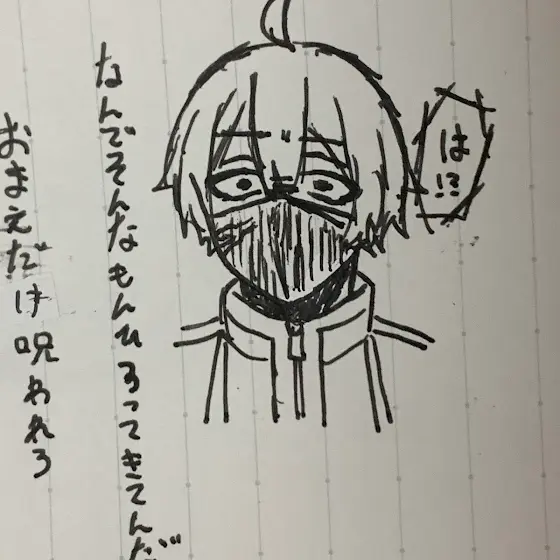 は!?
なんでそんなもんひろってきてんだ
おまえだけ呪われろ